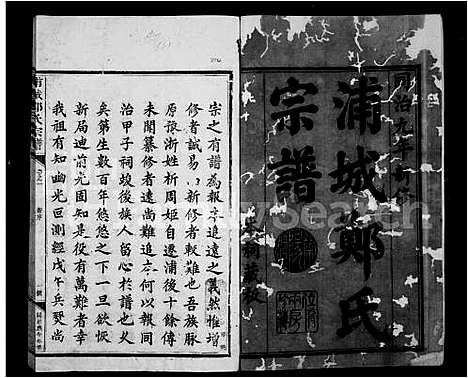 同治九年新修
浦城鄭氏
宗譜
本祠藏板
宗之有譜為報本追遠之義然惟增
修者誠易新修者較難也吾族脈
原豫浙姓析周姬自遷浦後十餘傳
未聞纂修者遠尚難追本何以報同
治甲子祠竣後族人留心於譜也久
矣第生數百年悠悠之下一旦欲恢
新局迪前光固知是役有萬難者幸
我祖有知幽光叵測經戊午兵燹尚
浦城鄭氏宗譜